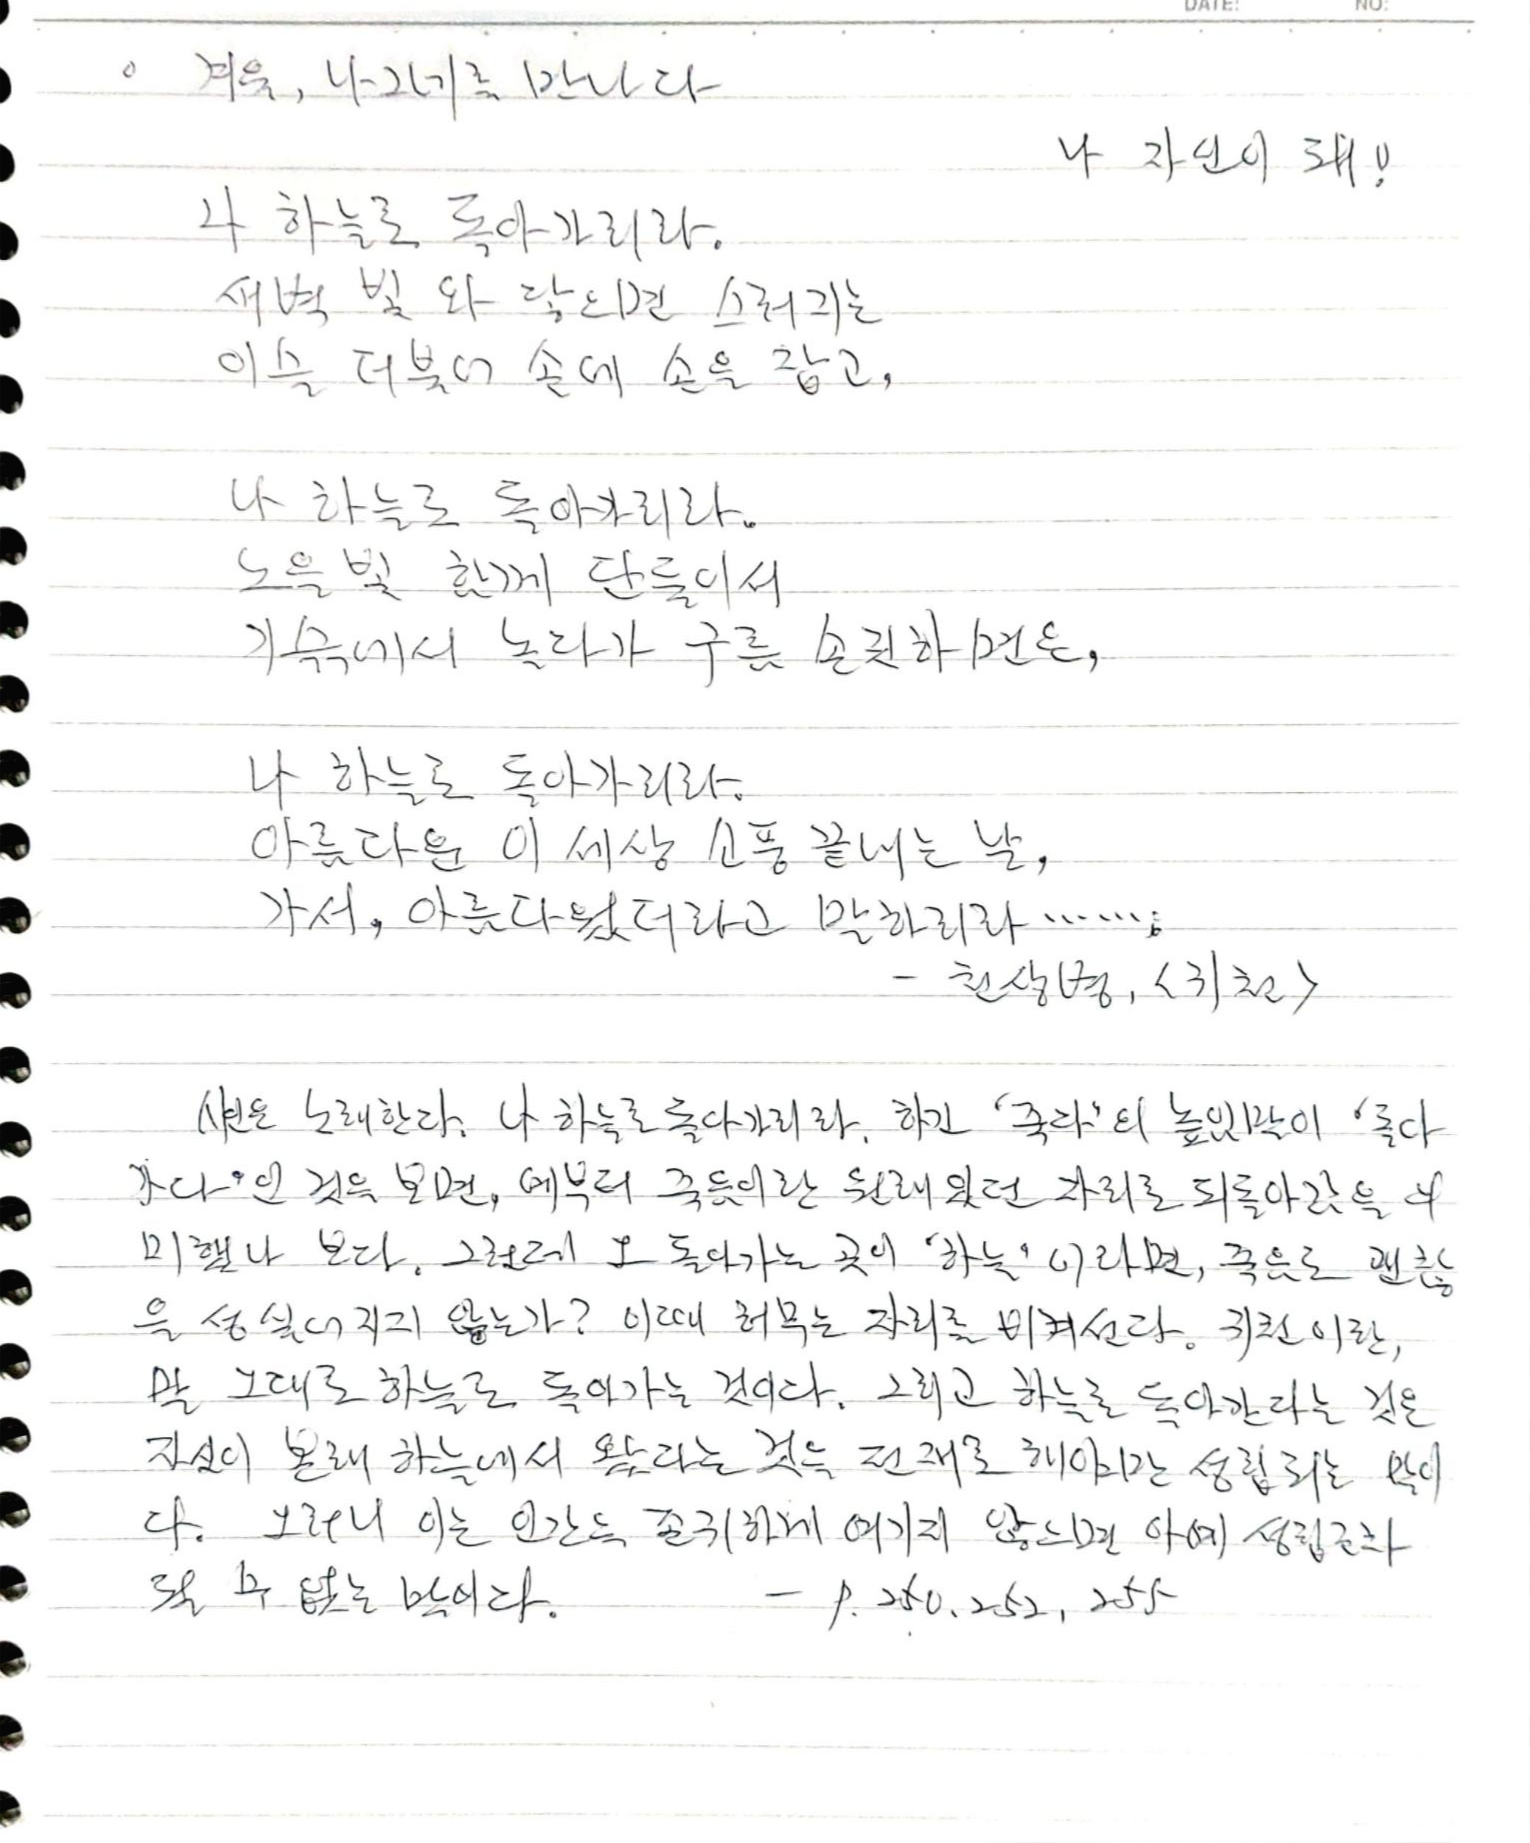 DATE: NO:
○ 겨울, 나그네를 만나다
나 자신이 돼!
나 하늘로 돌아가리라.
새벽 빛 와 닿으면 스러지는
이슬 더불어 손에 손을 잡고,
나 하늘로 돌아가리라.
노을빛 함께 단둘이서
기슭에서 놀다가 구름 손짓하면은,
나 하늘로 돌아가리라.
아름다운 이 세상 소풍 끝내는 날,
가서, 아름다웠더라고 말하리라……;
- 천상병, <귀천>
시인은 노래한다. 나 하늘로 돌아가리라. 하긴 '죽다'의 높임말이 '돌아
가다'인 것을 보면, 예부터 죽음이란 원래 있던 자리로 되돌아감을 의
미했나 보다. 그런데 그 돌아가는 곳이 '하늘'이라면, 죽음도 괜찮
을 성싶어지지 않는가? 이때 허무는 자리를 비켜선다. 귀천이란,
말 그대로 하늘로 돌아가는 것이다. 그리고 하늘로 돌아간다는 것은
자신이 본래 하늘에서 왔다는 것을 전제로 해야만 성립되는 말이
다. 그러니 이는 인간을 존귀하게 여기지 않으면 아예 성립조차
될 수 없는 말이다. - p. 250. 252, 255